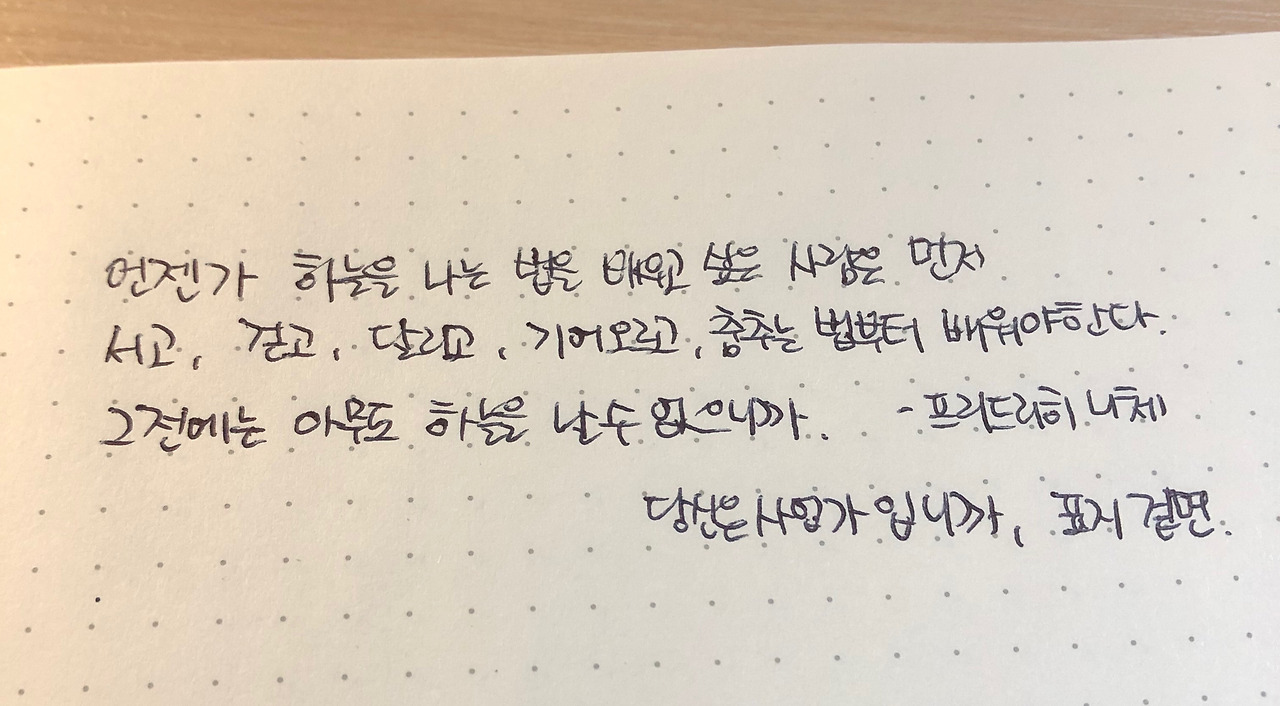 언젠가 하늘을 나는 법을 배우고 싶은 사람은 먼저
서고, 걷고, 달리고, 기어오르고, 춤추는 법부터 배워야한다.
그전에는 아무도 하늘을 날 수 없으니까. - 프리드리히 니체
당신은 사업가 입니까, 표지 겉면.